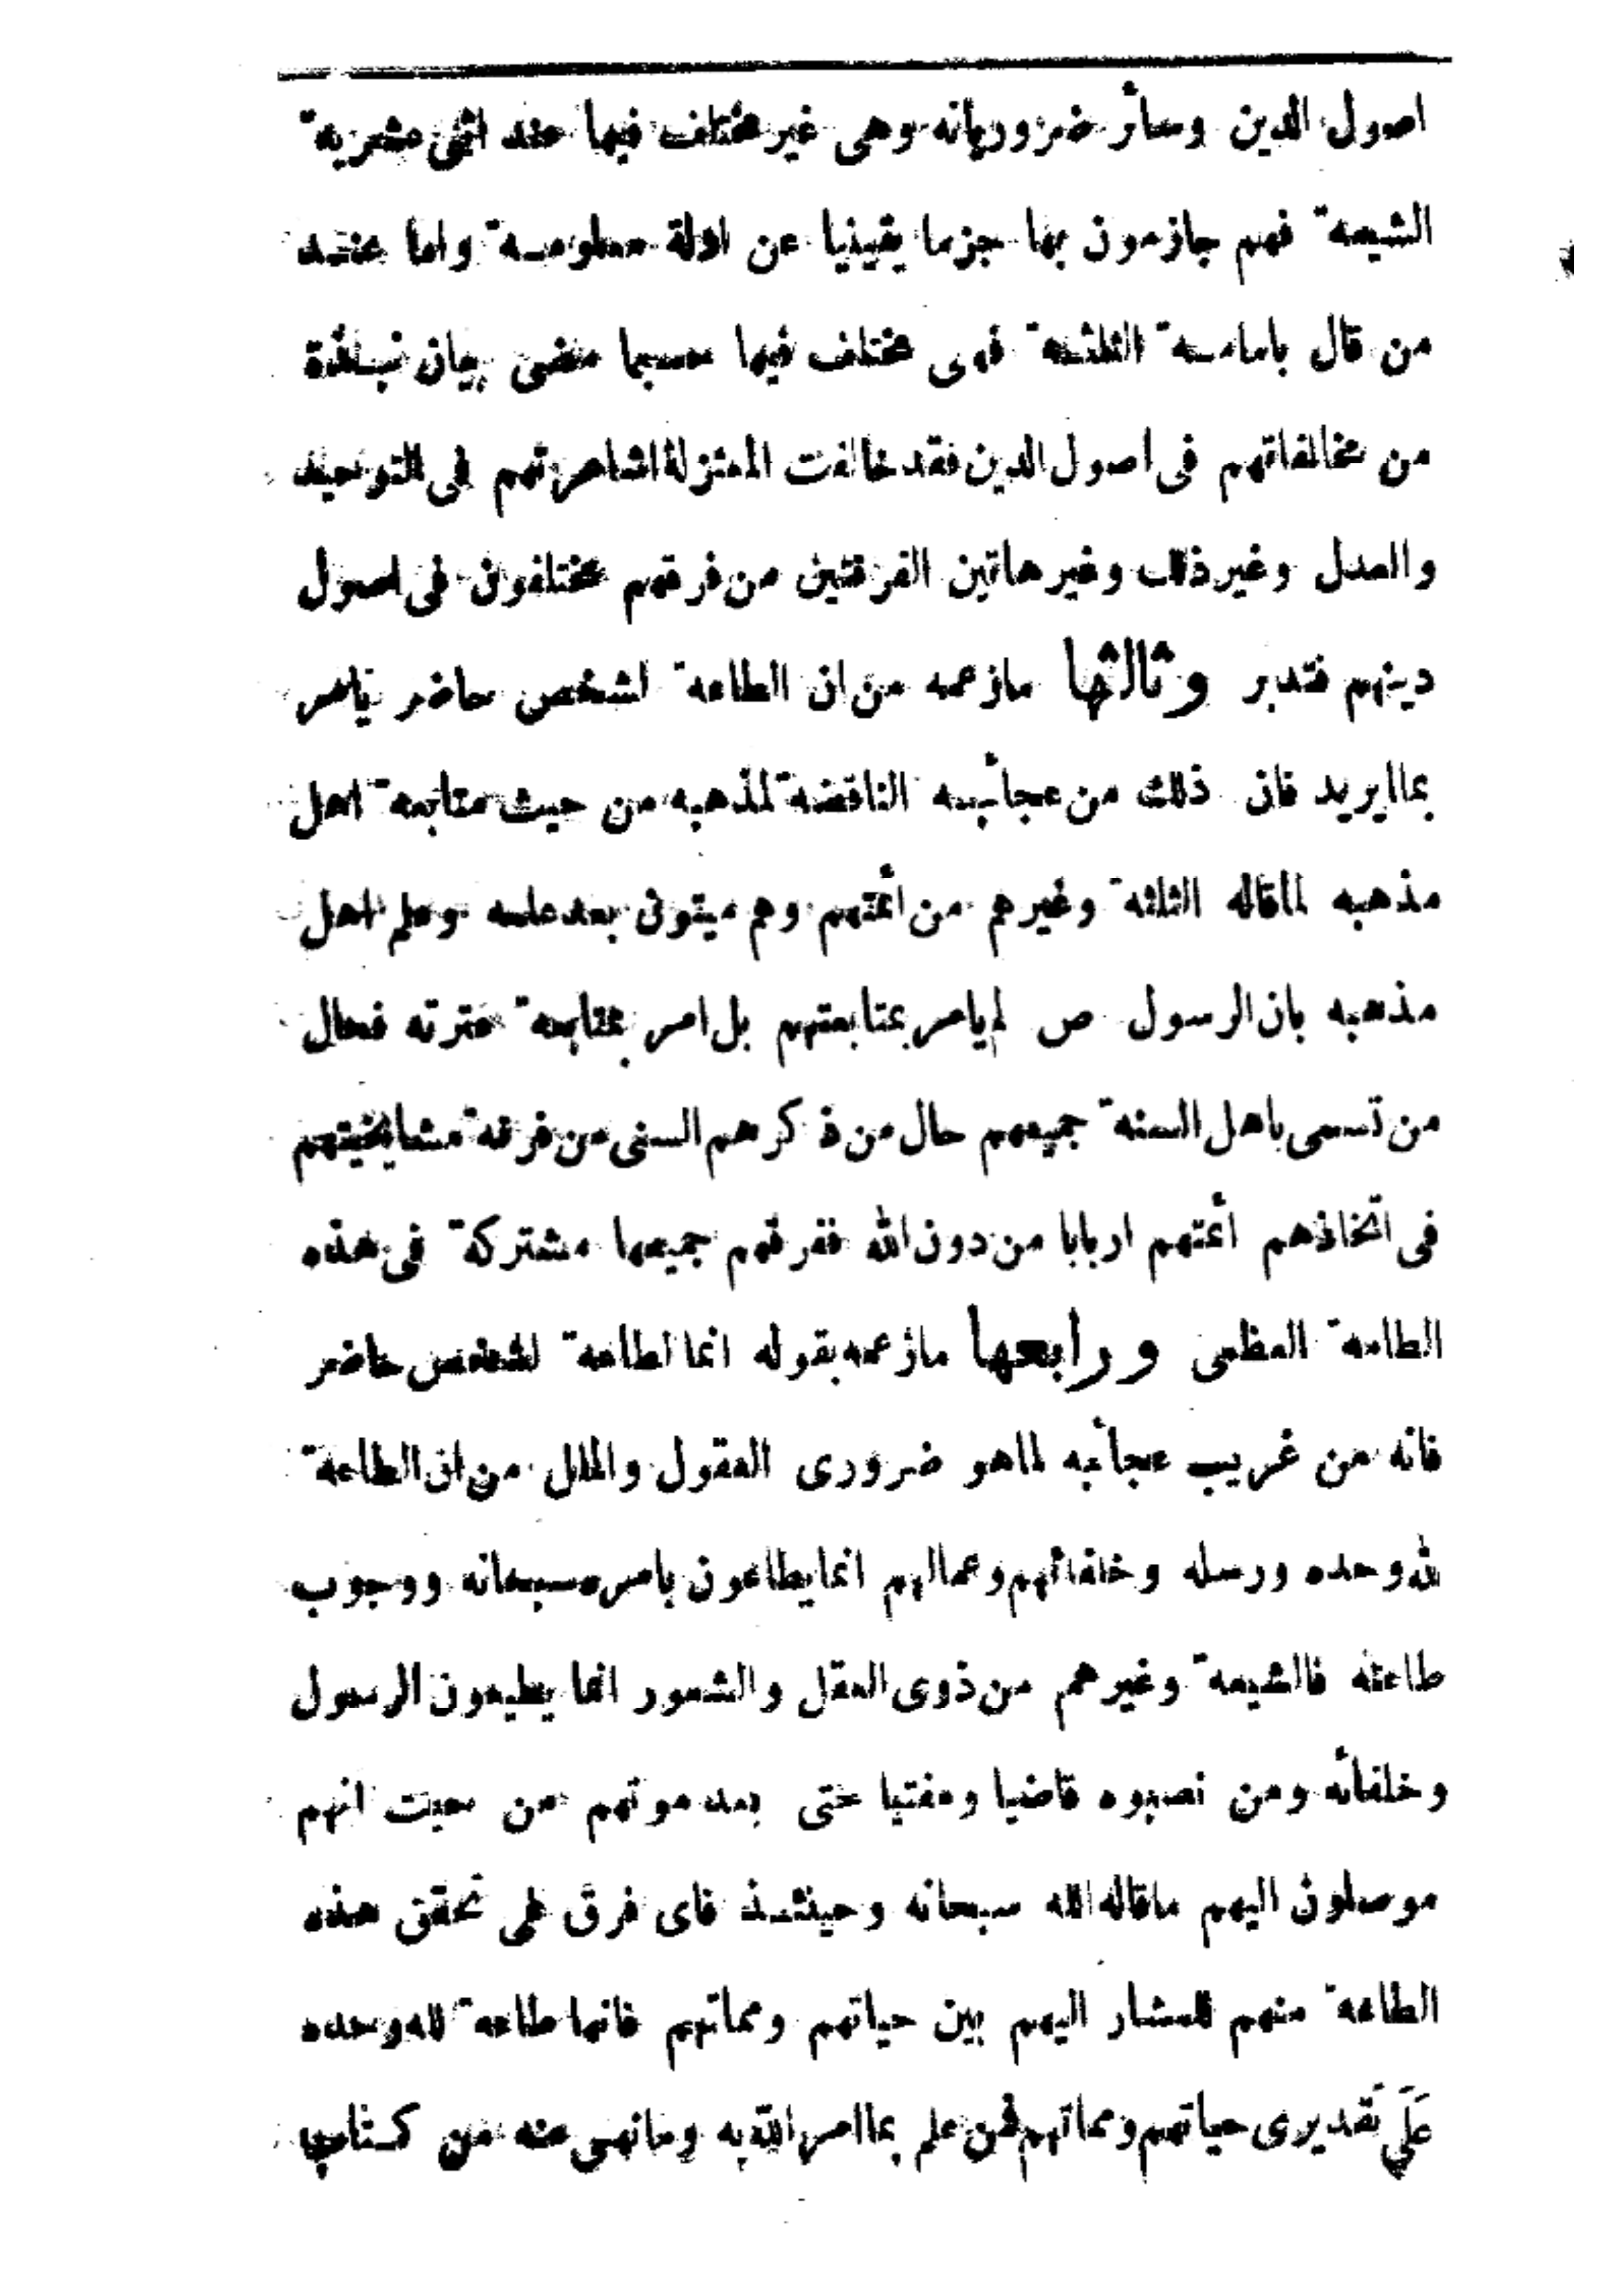 اصول الدين وسائر ضرورياته وهى غير مختلف فيها عند اثنى عشرية
الشيعة فهم جازمون بها جزما يقينيا عن ادلة معلومة واما عند
من قال بامامة الثلثة فهى مختلف فيها حسبما مضى بيان نبذة
من مخالفاتهم فى اصول الدين فقد خالفت المعتزلة اشاعرتهم فى التوحيد
والعدل وغير ذلك وغير هاتين الفرقتين من فرقهم مختلفون فى اصول
دينهم فتدبر وثالثها مازعمه من ان الطاعة لشخص حاضر يامر
بما يريد فان ذلك من عجائبه الناقضة لمذهبه من حيث متابعة اهل
مذهبه لماقاله الثلثة وغيرهم من أئمتهم وهم ميتون بعد علمه وعلم اهل
مذهبه بان الرسول ص لم يامر بمتابعتهم بل امر بمتابعة عترته فحال
من تسمى باهل السنة جميعهم حال من ذكرهم السنى من فرقة مشايخيتهم
فى اتخاذهم أئمتهم اربابا من دون الله ففرقهم جميعها مشتركة فى هذه
الطامة العظمى ورابعها مازعمه بقوله انما لطاعة لشخص حاضر
فانه من غريب عجائبه لماهو ضرورى العقول والملل من ان الطاعة
لله وحده ورسله وخلفائهم وعمالهم انما يطاعون بامره سبحانه ووجوب
طاعته فالشيعة وغيرهم من ذوى العقل والشعور انما يطيعون الرسول
وخلفائه ومن نصبوه قاضيا ومفتيا حتى بعد موتهم من حيث انهم
موصلون اليهم ماقاله الله سبحانه وحينئذ فاى فرق فى تحقق هذه
الطاعة منهم للمشار اليهم بين حياتهم ومماتهم فانها طاعة لله وحده
على تقديرى حياتهم ومماتهم فمن علم بما امر الله به ومانهى عنه من كتاب